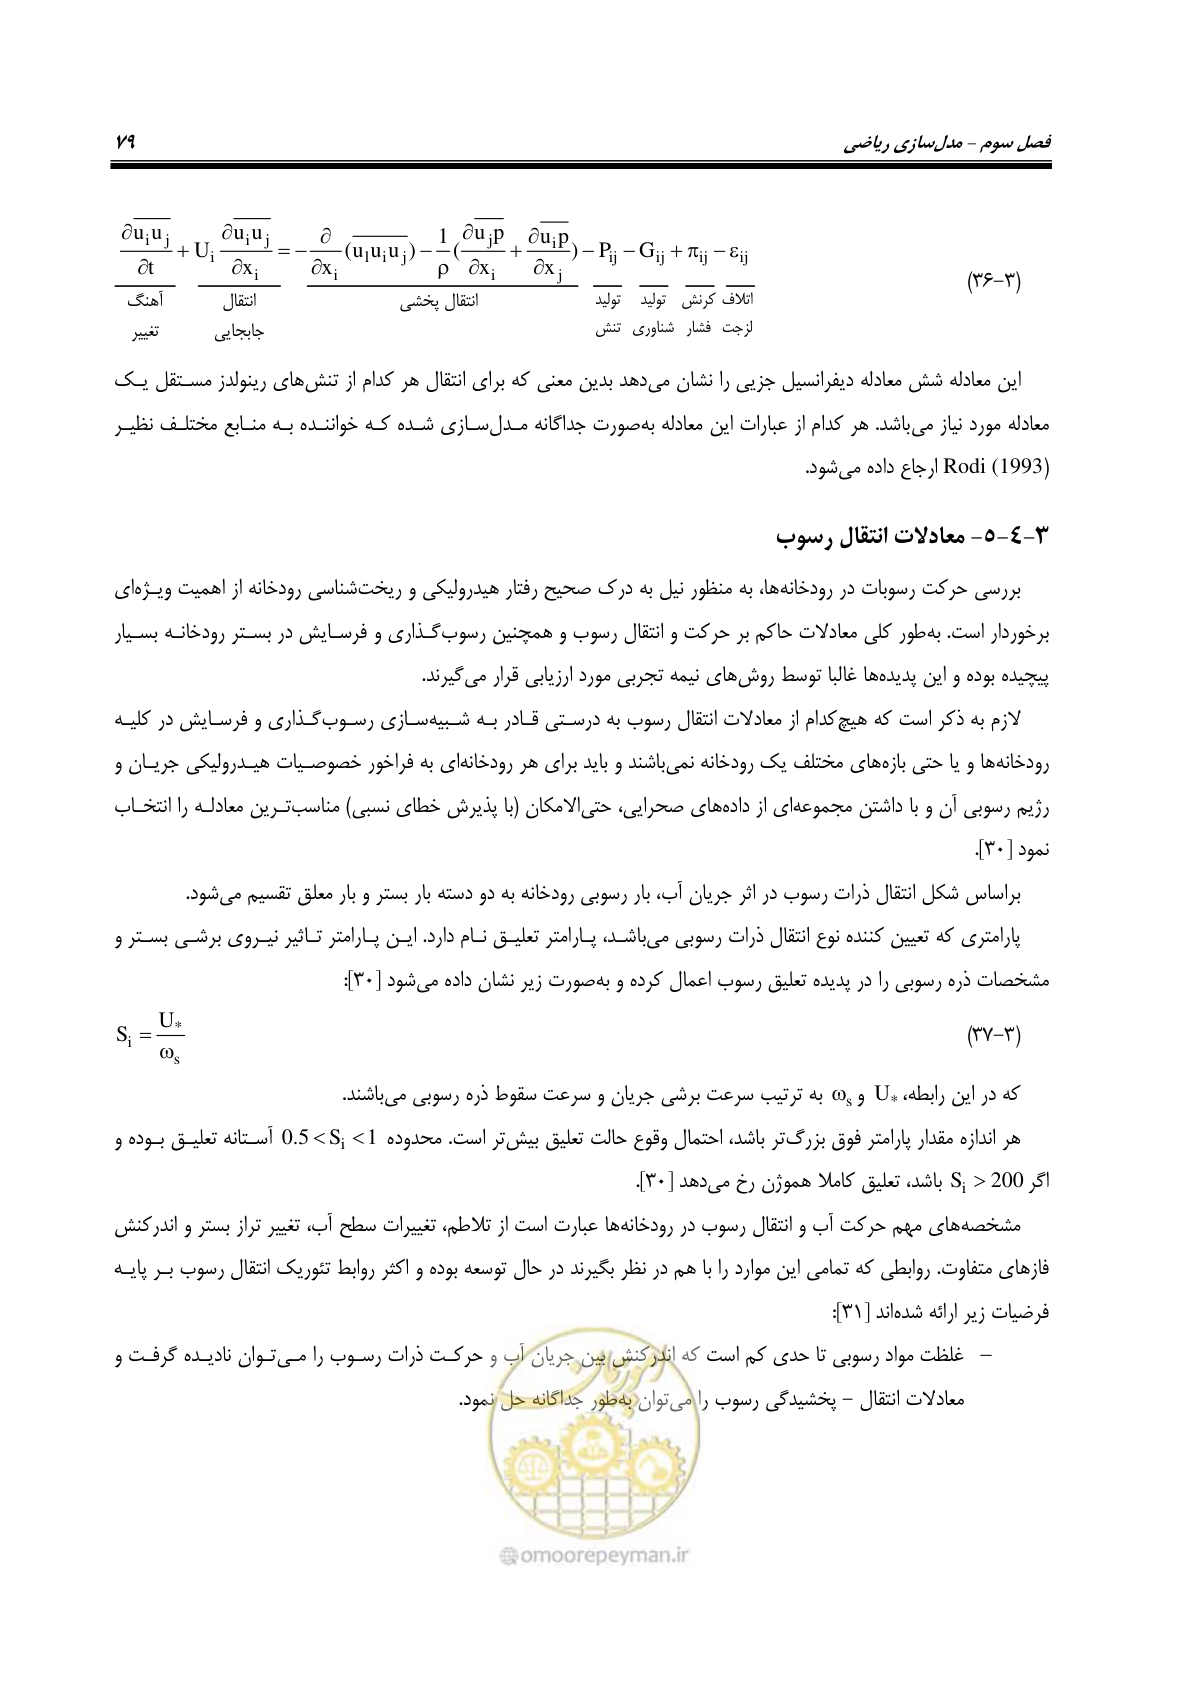 فصل سوم – مدل‌سازی ریاضی ۷۹
∂u̅i̅u̅j̅/∂t + Ui ∂u̅i̅u̅j̅/∂xi = − ∂/∂xi (u̅l̅u̅i̅u̅j̅) − 1/ρ (∂u̅j̅p̅/∂xi + ∂u̅i̅p̅/∂xj) − Pij − Gij + πij − εij (۳-۳۶)
آهنگ تغییر
انتقال جابجایی
انتقال پخشی
تولید تنش
تولید شناوری
کرنش فشار
اتلاف لزجت
این معادله شش معادله دیفرانسیل جزیی را نشان می‌دهد بدین معنی که برای انتقال هر کدام از تنش‌های رینولدز مستقل یک
معادله مورد نیاز می‌باشد. هر کدام از عبارات این معادله به‌صورت جداگانه مدل‌سازی شده که خواننده به منابع مختلف نظیر
Rodi (1993) ارجاع داده می‌شود.
۳-۴-۵- معادلات انتقال رسوب
بررسی حرکت رسوبات در رودخانه‌ها، به منظور نیل به درک صحیح رفتار هیدرولیکی و ریخت‌شناسی رودخانه از اهمیت ویژه‌ای
برخوردار است. به‌طور کلی معادلات حاکم بر حرکت و انتقال رسوب و همچنین رسوب‌گذاری و فرسایش در بستر رودخانه بسیار
پیچیده بوده و این پدیده‌ها غالبا توسط روش‌های نیمه تجربی مورد ارزیابی قرار می‌گیرند.
لازم به ذکر است که هیچ‌کدام از معادلات انتقال رسوب به درستی قادر به شبیه‌سازی رسوب‌گذاری و فرسایش در کلیه
رودخانه‌ها و یا حتی بازه‌های مختلف یک رودخانه نمی‌باشند و باید برای هر رودخانه‌ای به فراخور خصوصیات هیدرولیکی جریان و
رژیم رسوبی آن و با داشتن مجموعه‌ای از داده‌های صحرایی، حتی‌الامکان (با پذیرش خطای نسبی) مناسب‌ترین معادله را انتخاب
نمود [۳۰].
براساس شکل انتقال ذرات رسوب در اثر جریان آب، بار رسوبی رودخانه به دو دسته بار بستر و بار معلق تقسیم می‌شود.
پارامتری که تعیین کننده نوع انتقال ذرات رسوبی می‌باشد، پارامتر تعلیق نام دارد. این پارامتر تاثیر نیروی برشی بستر و
مشخصات ذره رسوبی را در پدیده تعلیق رسوب اعمال کرده و به‌صورت زیر نشان داده می‌شود [۳۰]:
Si = U*/ωs (۳-۳۷)
که در این رابطه، U* و ωs به ترتیب سرعت برشی جریان و سرعت سقوط ذره رسوبی می‌باشند.
هر اندازه مقدار پارامتر فوق بزرگ‌تر باشد، احتمال وقوع حالت تعلیق بیش‌تر است. محدوده 0.5 < Si < 1 آستانه تعلیق بوده و
اگر Si > 200 باشد، تعلیق کاملا هموژن رخ می‌دهد [۳۰].
مشخصه‌های مهم حرکت آب و انتقال رسوب در رودخانه‌ها عبارت است از تلاطم، تغییرات سطح آب، تغییر تراز بستر و اندرکنش
فازهای متفاوت. روابطی که تمامی این موارد را با هم در نظر بگیرند در حال توسعه بوده و اکثر روابط تئوریک انتقال رسوب بر پایه
فرضیات زیر ارائه شده‌اند [۳۱]:
– غلظت مواد رسوبی تا حدی کم است که اندرکنش بین جریان آب و حرکت ذرات رسوب را می‌توان نادیده گرفت و
معادلات انتقال – پخشیدگی رسوب را می‌توان به‌طور جداگانه حل نمود.
امور پیمان
@omoorepeyman.ir